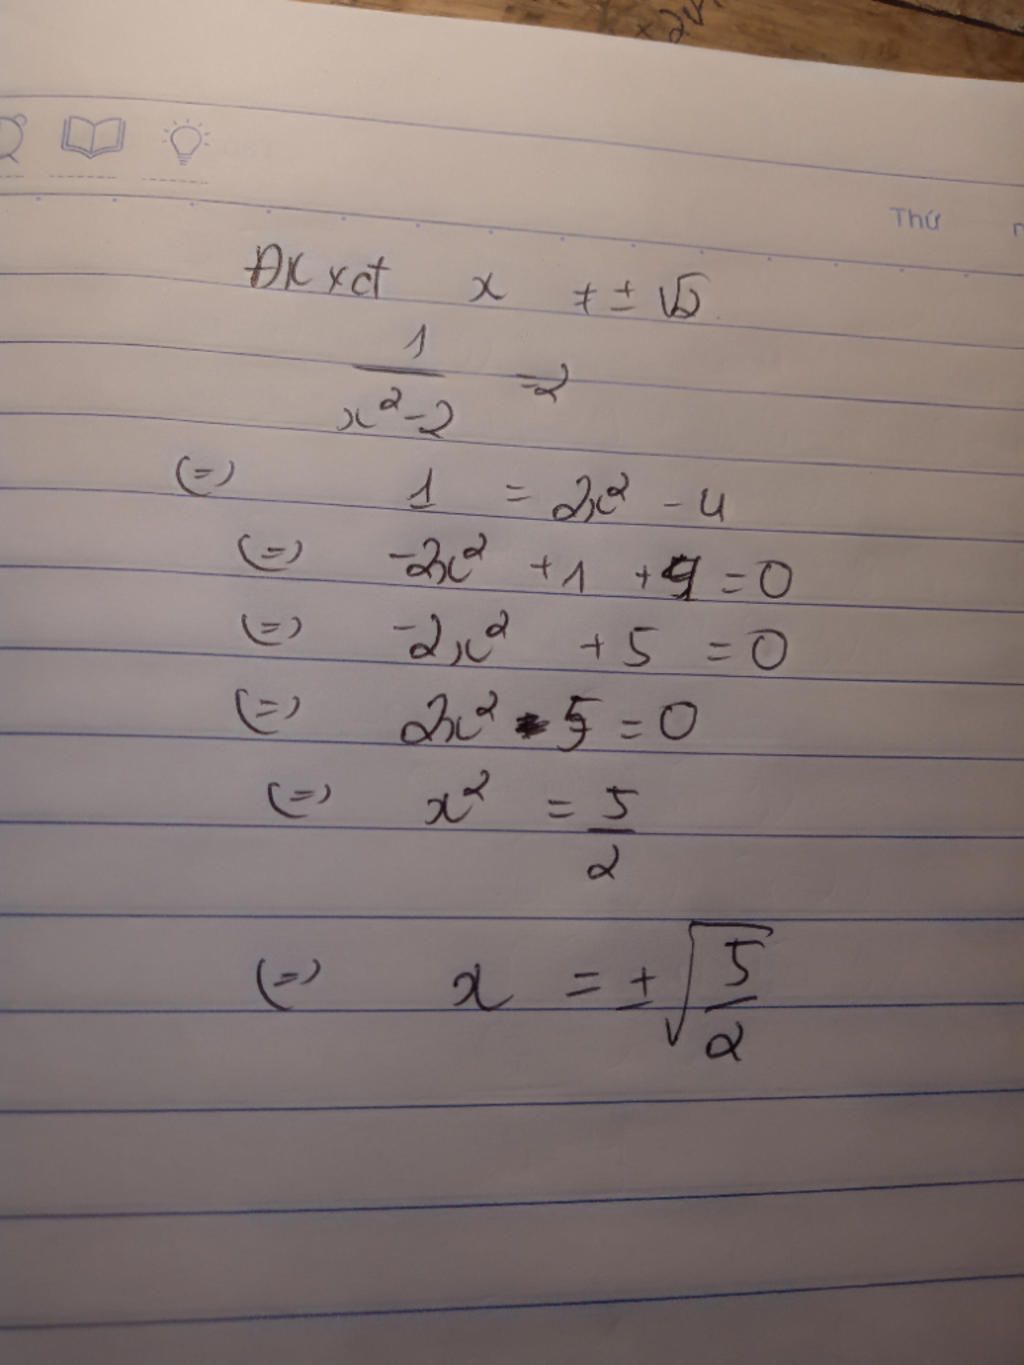 Thứ
ĐK xđ x ≠ ± √2
1/(x² - 2) = 2
(=) 1 = 2x² - 4
(=) -2x² + 1 + 4 = 0
(=) -2x² + 5 = 0
(=) 2x² - 5 = 0
(=) x² = 5/2
(=) x = ± √(5/2)